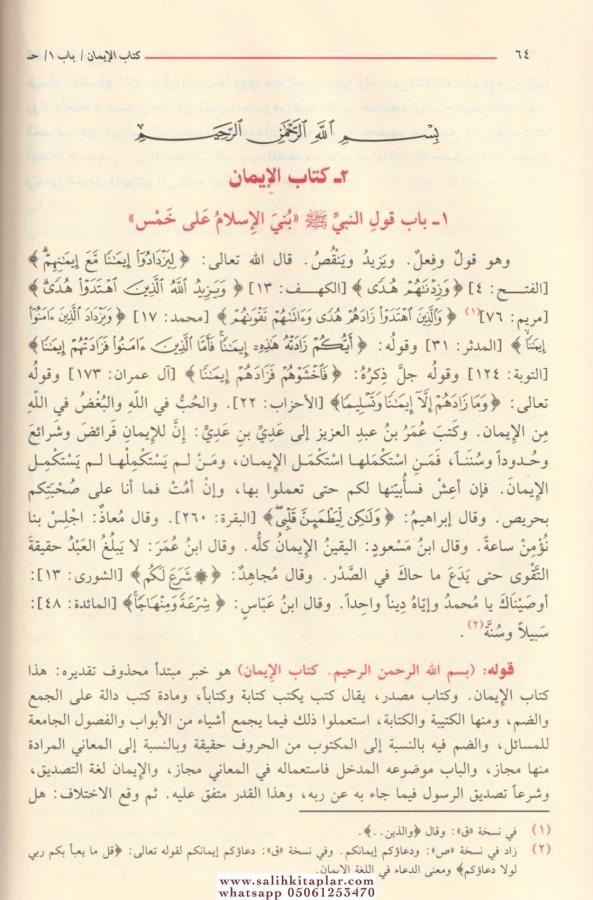 ٦٤ كتاب الإيمان / باب ١/ حـ
بِسْمِ اللَّهِ الرَّحْمَنِ الرَّحِيمِ
٢ـ كتاب الإيمان
١ ـ باب قولِ النبيِّ ﷺ «بُنيَ الإسلامُ عَلى خَمْس»
وهو قولٌ وفِعلٌ. ويَزيدُ ويَنْقُصُ. قال الله تعالى: ﴿لِيَزْدَادُوٓا۟ إِيمَـٰنًا مَّعَ إِيمَـٰنِهِمْ﴾
[الفتـح: ٤] ﴿وَزِدْنَـٰهُمْ هُدًى﴾ [الكهـف: ١٣] ﴿وَيَزِيدُ ٱللَّهُ ٱلَّذِينَ ٱهْتَدَوْا۟ هُدًى﴾
[مريم: ٧٦](١) ﴿وَٱلَّذِينَ ٱهْتَدَوْا۟ زَادَهُمْ هُدًى وَءَاتَىٰهُمْ تَقْوَىٰهُمْ﴾ [محمد: ١٧] ﴿وَيَزْدَادَ ٱلَّذِينَ ءَامَنُوٓا۟
إِيمَـٰنًا﴾ [المدثر: ٣١] وقولُه: ﴿أَيُّكُمْ زَادَتْهُ هَـٰذِهِۦٓ إِيمَـٰنًا فَأَمَّا ٱلَّذِينَ ءَامَنُوا۟ فَزَادَتْهُمْ إِيمَـٰنًا﴾
[التوبة: ١٢٤] وقولُه جلَّ ذِكرُهُ: ﴿فَٱخْشَوْهُمْ فَزَادَهُمْ إِيمَـٰنًا﴾ [آل عمران: ١٧٣] وقولُه
تعالى: ﴿وَمَا زَادَهُمْ إِلَّآ إِيمَـٰنًا وَتَسْلِيمًا﴾ [الأحزاب: ٢٢]. والحُبُّ في اللّهِ والبُغْضُ في اللّهِ
مِن الإيمان. وكتَبَ عُمَرُ بنُ عبدِ العزيز إلى عَدِيِّ بنِ عَدِيٍّ: إنَّ للإيمَانِ فَرائضَ وشَرائعَ
وحُدوداً وسُنَناً، فَمَنِ اسْتَكمَلها اسْتَكمَلَ الإيمَان، ومَنْ لـم يَسْتَكْمِلْها لـم يَسْتَكْمِلِ
الإيمَانَ. فإن أعِشْ فسأُبيّنها لكم حتى تعملوا بها، وإنْ أمُتْ فما أنا على صُحْبَتِكم
بحريص. وقال إبراهيمُ: ﴿وَلَـٰكِن لِّيَطْمَئِنَّ قَلْبِى﴾ [البقرة: ٢٦٠]. وقال مُعاذٌ: اجْلِسْ بنا
نُؤْمِنْ ساعةً. وقال ابنُ مَسْعودٍ: اليقينُ الإيمانُ كلُّه. وقال ابنُ عُمَرَ: لا يَبلُغُ العَبْدُ حقيقةَ
التَّقْوى حتى يَدَعَ ما حاكَ في الصَّدْر. وقال مُجاهِدٌ: ﴿۞ شَرَعَ لَكُم﴾ [الشورى: ١٣]:
أوصَيْناكَ يا مُحمدُ وإيَّاهُ دِيناً واحِداً. وقال ابنُ عَبّاسٍ: ﴿شِرْعَةً وَمِنْهَاجًا﴾ [المائدة: ٤٨]:
سَبيلاً وسُنَّة(٢).
قوله: (بسم الله الرحمن الرحيم. كتاب الإيمان) هو خبر مبتدأ محذوف تقديره: هذا
كتاب الإيمان. وكتاب مصدر، يقال كتب يكتب كتابة وكتاباً، ومادة كتب دالة على الجمع
والضم، ومنها الكتيبة والكتابة، استعملوا ذلك فيما يجمع أشياء من الأبواب والفصول الجامعة
للمسائل، والضم فيه بالنسبة إلى المكتوب من الحروف حقيقة وبالنسبة إلى المعاني المرادة
منها مجاز، والباب موضوعه المدخل فاستعماله في المعاني مجاز، والإيمان لغة التصديق،
وشرعاً تصديق الرسول فيما جاء به عن ربه، وهذا القدر متفق عليه. ثم وقع الاختلاف: هل
(١) في نسخة «ق»: وقال ﴿والذين..﴾.
(٢) زاد في نسخة «ص»: ودعاؤكم إيمانكم. وفي نسخة «ق»: دعاؤكم إيمانكم لقوله تعالى: ﴿قل ما يعبأ بكم ربي
لولا دعاؤكم﴾ ومعنى الدعاء في اللغة الإيمان.
www.salihkitaplar.com
whatsapp 05061253470